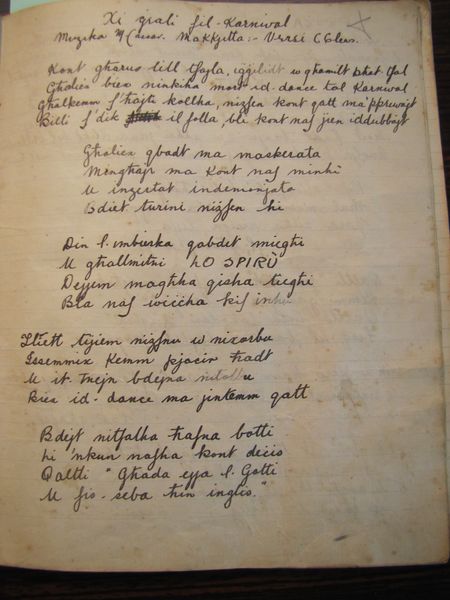 Xi ġrali fil-Karnwal
Muzika Mro Cesar. Makkjetta:- Versi C Clews.
Kont għarus lill tfajla, iġġelidt w għamilt phat Jal
Għaliex biex ninkiha mort id-dance tal Karnwal
Għalkemm f'ħajti kollha, nizfen kont qatt ma'ppruvajt
Billi f'dik il folla, bli kont naf jien iddubbajt
Għaliex qbadt ma maskerata
Mingħajr ma Kont naf minhi
U inzertat indemonjata
Bdiet turini nizfen hi
Din l. imbierka qabdet miegħi
U għallmitni LO SPIRÙ
Dejjem magħha qisha tiegħi
Bla naf wiċċha kif inhu
Tliett tijiem nizfnu w nixorbu
Issemmix Kemm pjaċir ħadt
U it-tnejn bdejna nitolbu
Biex id-dance ma jintemm qatt
Bdejt nitfalha ħafna botti
hi 'nkun nafha kont deċis
Qaltli "Għada ejja l. Gotti
U fis-seba ħin inglis."